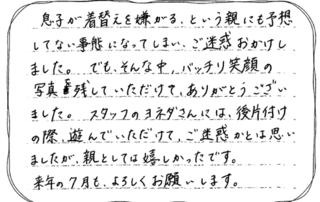 息子が着替えを嫌がる、という親にも予想
してない事態になってしまい、ご迷惑おかけし
ました。でも、そんな中、バッチリ笑顔の
写真を残していただけて、ありがとうござい
ました。スタッフのヨネダさんには、後片付け
の際、遊んでいただけて、ご迷惑かとは思い
ましたが、親としては嬉しかったです。
来年の7月も、よろしくお願いします。